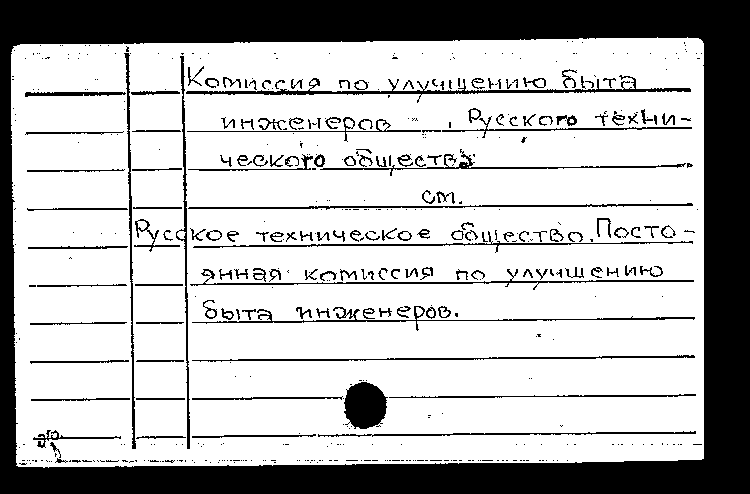 Комиссия по улучшению быта
инженеров , Русского техни-
ческого общества
см.
Русское техническое общество. Посто-
янная комиссия по улучшению
быта инженеров.